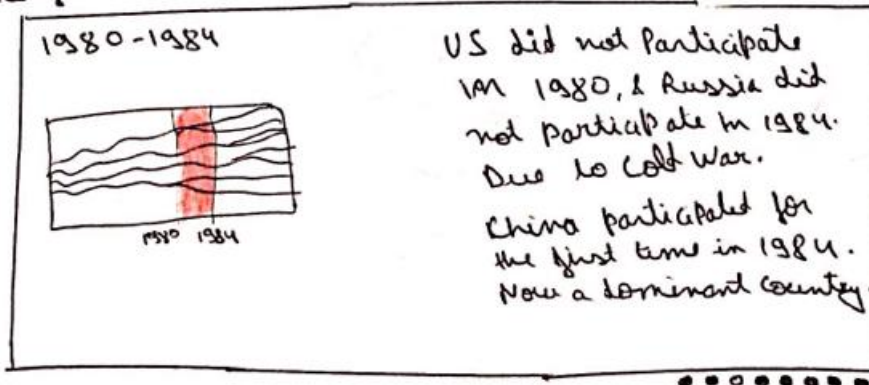 1980-1984
1980 1984
US did not Participate
in 1980, & Russia did
not participate in 1984.
Due to Cold War.
China participated for
the first time in 1984.
Now a dominant country.